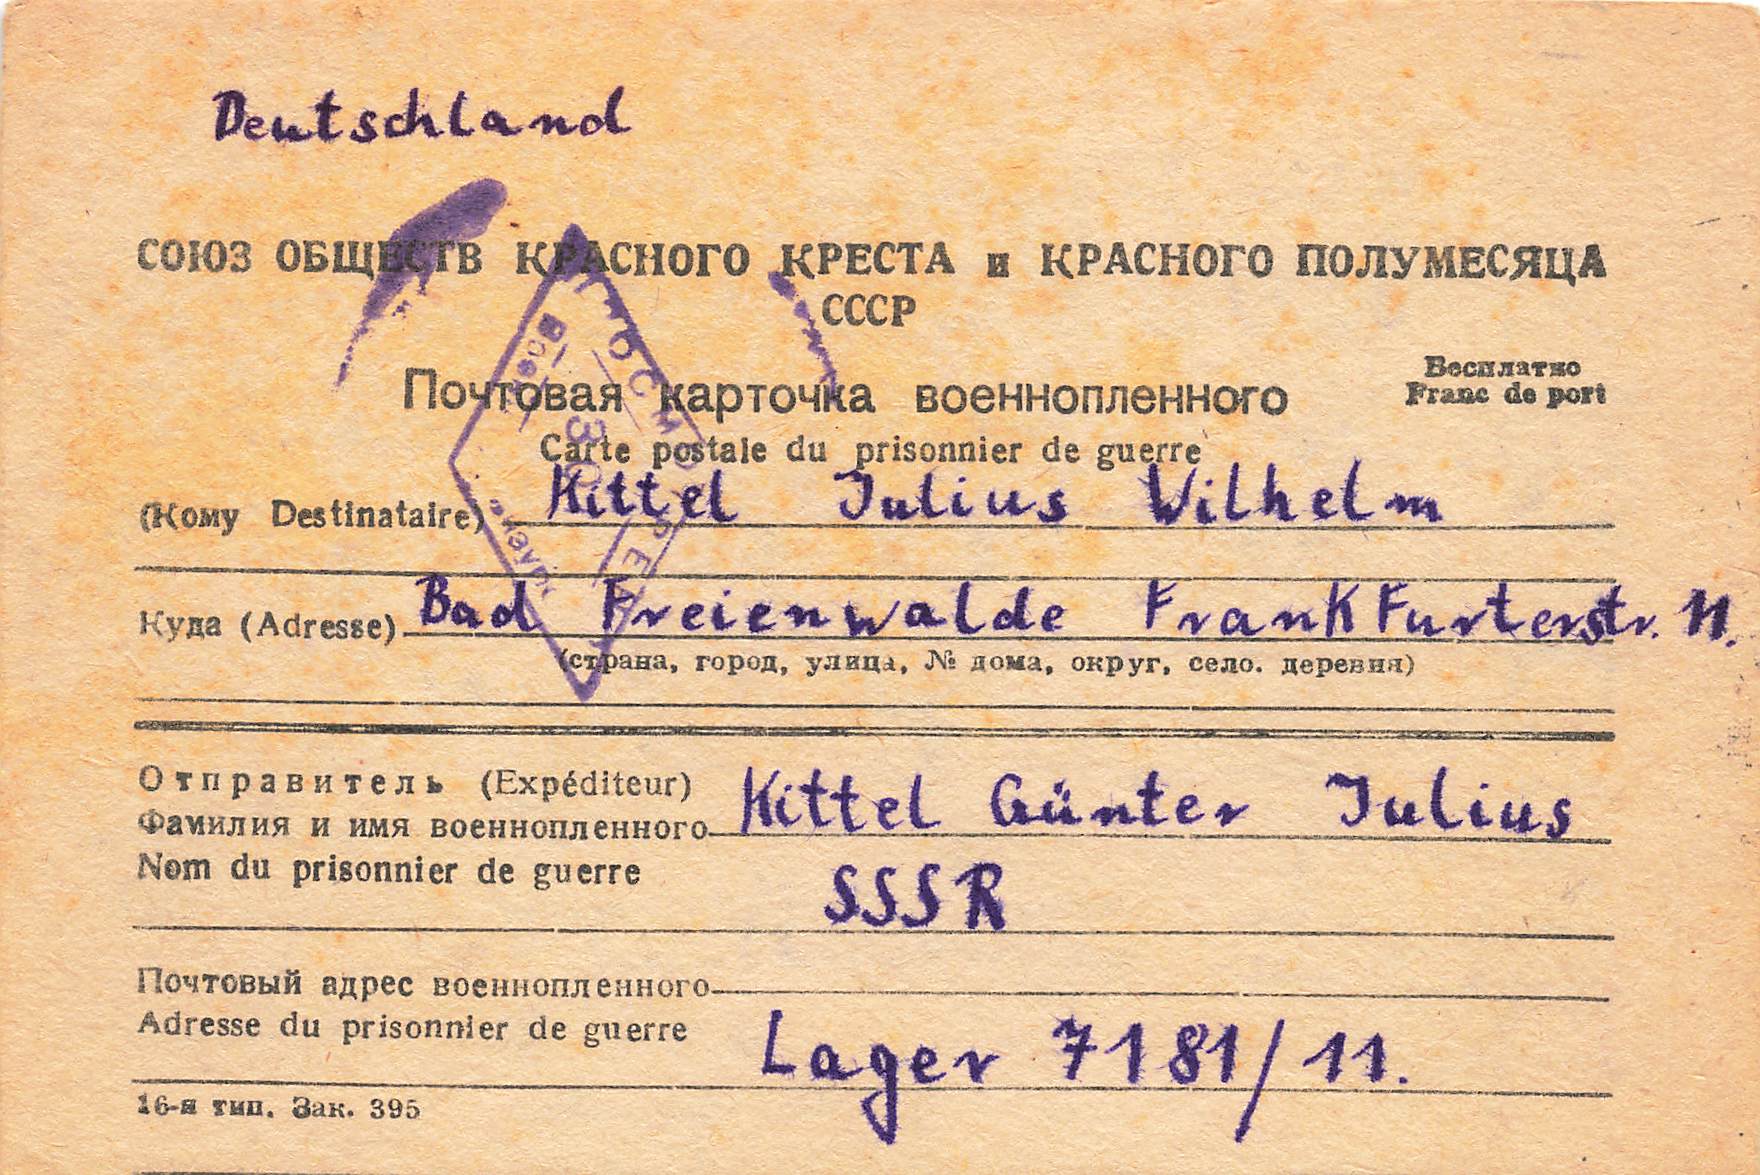 Deutschland
СОЮЗ ОБЩЕСТВ КРАСНОГО КРЕСТА и КРАСНОГО ПОЛУМЕСЯЦА
СССР
Бесплатно
Franc de port
Почтовая карточка военнопленного
Carte postale du prisonnier de guerre
(Кому Destinataire) Kittel Julius Wilhelm
Куда (Adresse) Bad Freienwalde Frankfurterstr. 11.
(страна, город, улица, № дома, округ, село. деревня)
Отправитель (Expéditeur)
Фамилия и имя военнопленного Kittel Günter Julius
Nom du prisonnier de guerre SSSR
Почтовый адрес военнопленного
Adresse du prisonnier de guerre Lager 7181/11.
16-я тип. Зак. 395